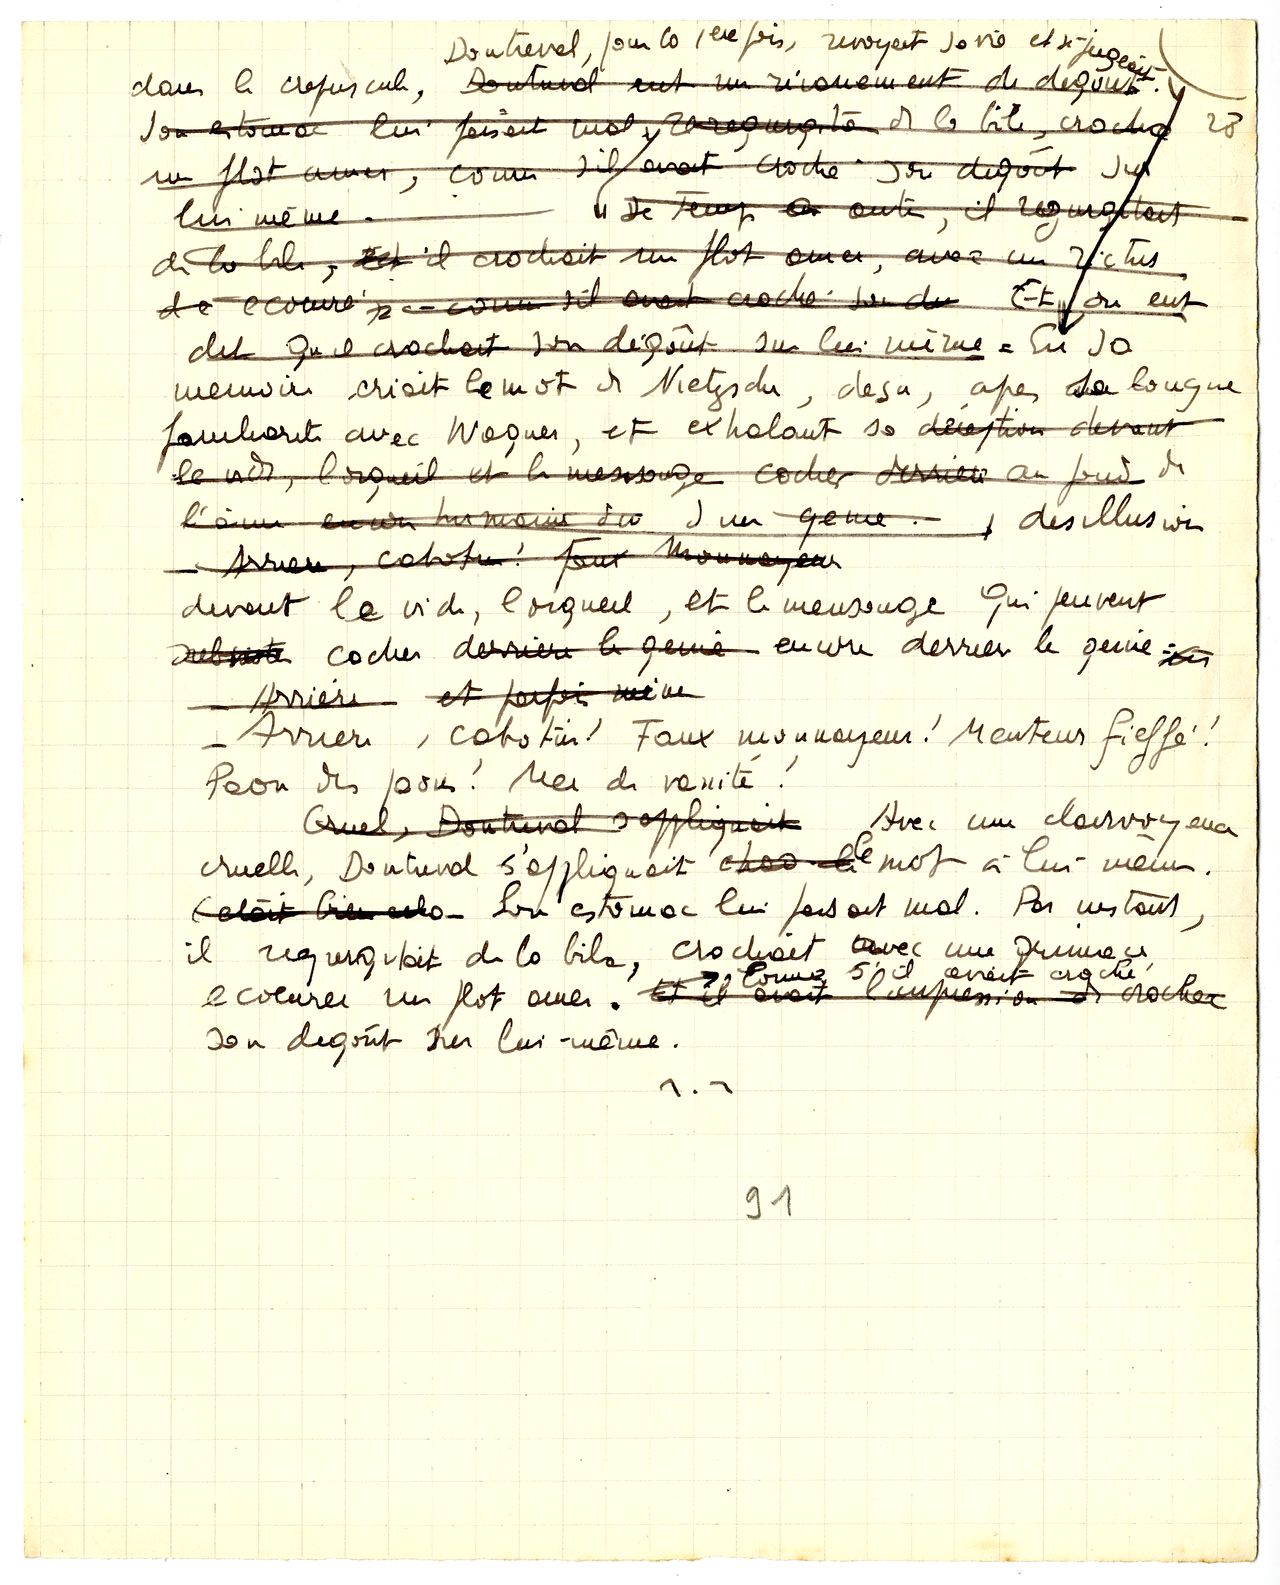 Doutreval, pour la 1ère fois, revoyait sa vie et se jugeait.
dans le crépuscule, Doutreval eut un ricanement de dégoût.
28
Son estomac lui faisait mal, il regurgita de la bile, cracha
un flot amer, comme s'il avait craché son dégoût sur
lui même. De temps en autre, il regurgitait
de la bile, et il crachait un flot amer, avec un rictus
écoeuré comme s'il avait craché son de Et on eut
dit qu'il crachait son dégôut sur lui même. En sa
memoire criait le mot de Nietzsche, deçu, apres sa longue
familiarité avec Wagner, et exhalant sa déception devant
le vide, l'orgueil et le mensonge cachés derrière au fond de
l'âme encore humaine d'un génie. desillusion
– Arriere, cabotin! faux Monnayeur
devant le vide, l'orgueil, et le mensonge qui peuvent
subsister cacher derriere le genie encore derriere le genie
– Arrière et parfois même
– Arriere, cabotin! Faux monnayeur! Menteur fieffé!
Paon des paons! Mer de vanité!
Cruel, Doutreval s'appliquait Avec une clairvoyance
cruelle, Doutreval s'appliquait le mot à lui-même.
C'était bien cela Son estomac lui faisait mal. Par instants,
il regurgitait de la bile, crachait avec une grimace
Comme s'il avait craché
ecoeurée un flot amer. Et il avait l'impression de cracher
son degoût sur lui-même.
91